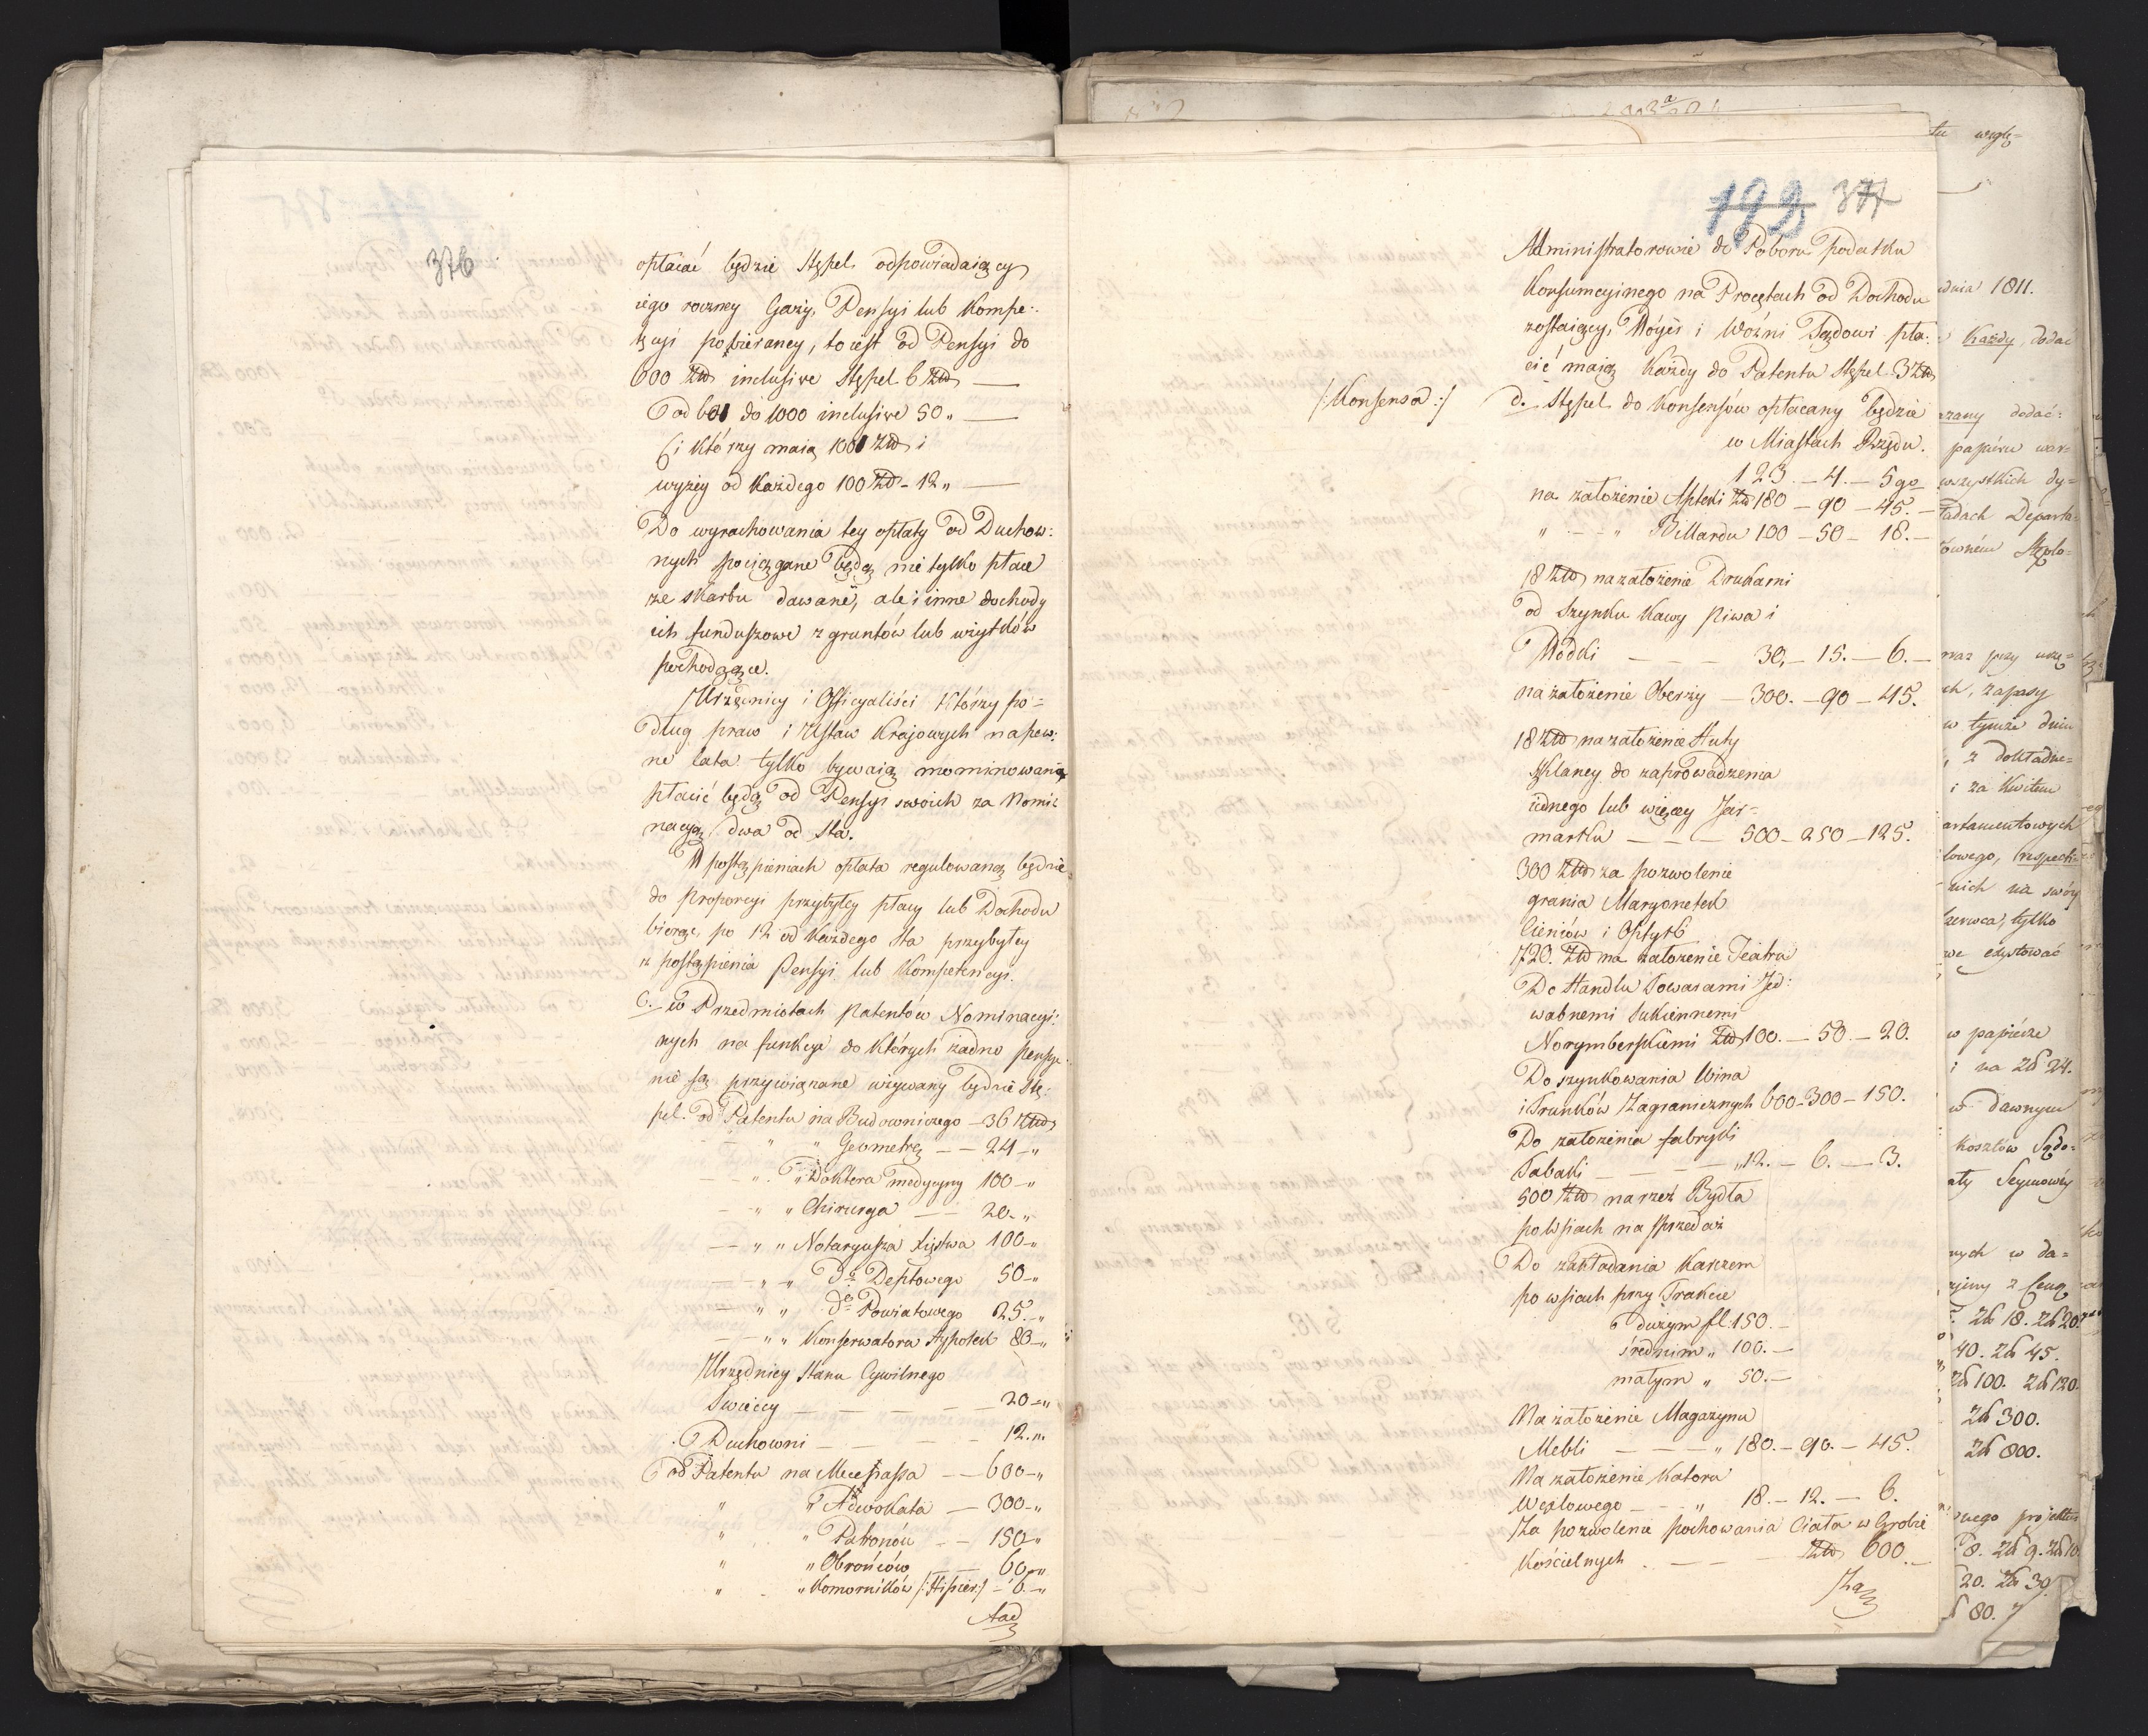 376
opłacać będzie Stępel odpowiadaiący
iego roczney Gaży, Pensyi lub Kompe:
tęcyi pobieraney, to iest od Pensyi do
600 Złł inclusive Stępel 6 Złł —
Od 601 do 1000 inclusive 50 „ —
Ci którzy maią 1001 Złł i
wyżey od każdego 100 Złł - 12 „ —
Do wyrachowania tey opłaty od Duchow:
nych pociągane będą nie tylko płace
ze skarbu dawane, ale i inne dochody
ich funduszowe z gruntów lub użytków
pochodzące.
Urzędnicy i Officyaliści którzy po=
dług praw i Ustaw Krajowych na pew:
ne lata tylko bywaią mominowani
płacić będą od Pensyi swoich za Nomi:
nacyą dwa od sta.
W postąpieniach opłata regulowaną będzie
do proporcyi przybyłey płacy lub Dochodu
biorąc, po 12 od każdego sta przybyłey
z postąpienia Pensyi lub Kompetencyi.
C. w Przedmiotach patentów Nominacyi:
nych na funkcye do których żadne pensye
nie są przywiązane używany będzie Stę:
pel. od Patentu na Budowniczego — 36 Złł
— „ „ Geometrę — — 24 — „
— „ „ Doktera medycyny 100 — „
— „ „ Chirurga — — 20. — „
— „ „ Notaryusza Xięstwa 100 — „
— „ „ do Deptowego 50 — „
— „ „ do Powiatowego 25. — „
— „ „ Konserwatora Hypotek 80 — „
Urzędnicy Stanu Cywilnego
Swieccy — — — — — 20 — „
Duchowni — — — — 12. „
od Patentu na Mecenasa — — 600 — „
„ „ Adwokata — 300 — „
„ „ Patronów — — 150 „
„ „ Obrońców — 60 „
„ „ Komorników /:Hissier:/ — 6. — „
Ad
192 377
Administratorowie do Poboru podatku
Konsumcyinego na Procętach od Dochodu
zostaiący, Woyci i Woźni Sądowi pła:
cić maią każdy do Patentu Stępel 3 Złł
/:Konsensa:/ d. Stępel do Konsensów opłacany będzie
w Miastach Rzędu.
1 2 3. — 4. — 5go
na założenie Apteki Złł 180 — 90 — 45. —
„ — „ Billardu 100 — 50 — 18. —
18 Złł na założenie Drukarni
od Szynku Kawy Piwa i
Wódki — — — 30, — 15. — 6. —
na założenie Oberży — 300. — 90 — 45.
18 Złł na założenie Huty
Szklaney do zaprowadzenia
iednego lub więcey Jar=
marku — — — 500 — 250 — 125.
300 Złł za pozwolenie
grania Maryonetek
Cieniów i Optyk
720. Złł na założenie Teatru
Do Handlu Towarami Jed:
wabnemi Sukiennemi
Norymberskiemi Złł 100. — 50. — 20.
Do szynkowania Wina
i Trunków Zagranicznych 600 — 300 — 150.
Do założenia fabryki
Tabaki — — — „ 12. — 6. — 3.
500 Złł na rzeź Bydła
po Wsiach na sprzedaż
Do zakładania Karczem
po wsiach przy Trakcie
dużym fl. 150. —
średnim „ 100. —
małym „ 50. —
Na założenie Magazynu
Mebli — — — „ 180. — 90. — 45.
Na założenie Katoru
Wexlowego — — „ 18. — 12. — 6.
Za pozwolenie pochowania Ciała w Grobie
Kościelnych — — Złł 600. —
Za
tu wzglę=
dnia 1811.
Każdy, dodać
dodać:
papieru war=
wszystkich dy=
Departa=
Stęplo=
przy
ch, zapasy
w tymże dniu
z dokładne=
i za kwitem
artamentowych
lowego, respecti=
nich na swóy
czerwca, tylko
we
w papierze
i na zł 24.
w dawnym
kosztów Sądo=
Seymowéy
nych w da=
zł 18. zł 20.
40. zł 45.
zł 100. zł 120.
zł 300.
zł 800.
projektu
8. zł 9. zł 10
20. zł 30.
80.